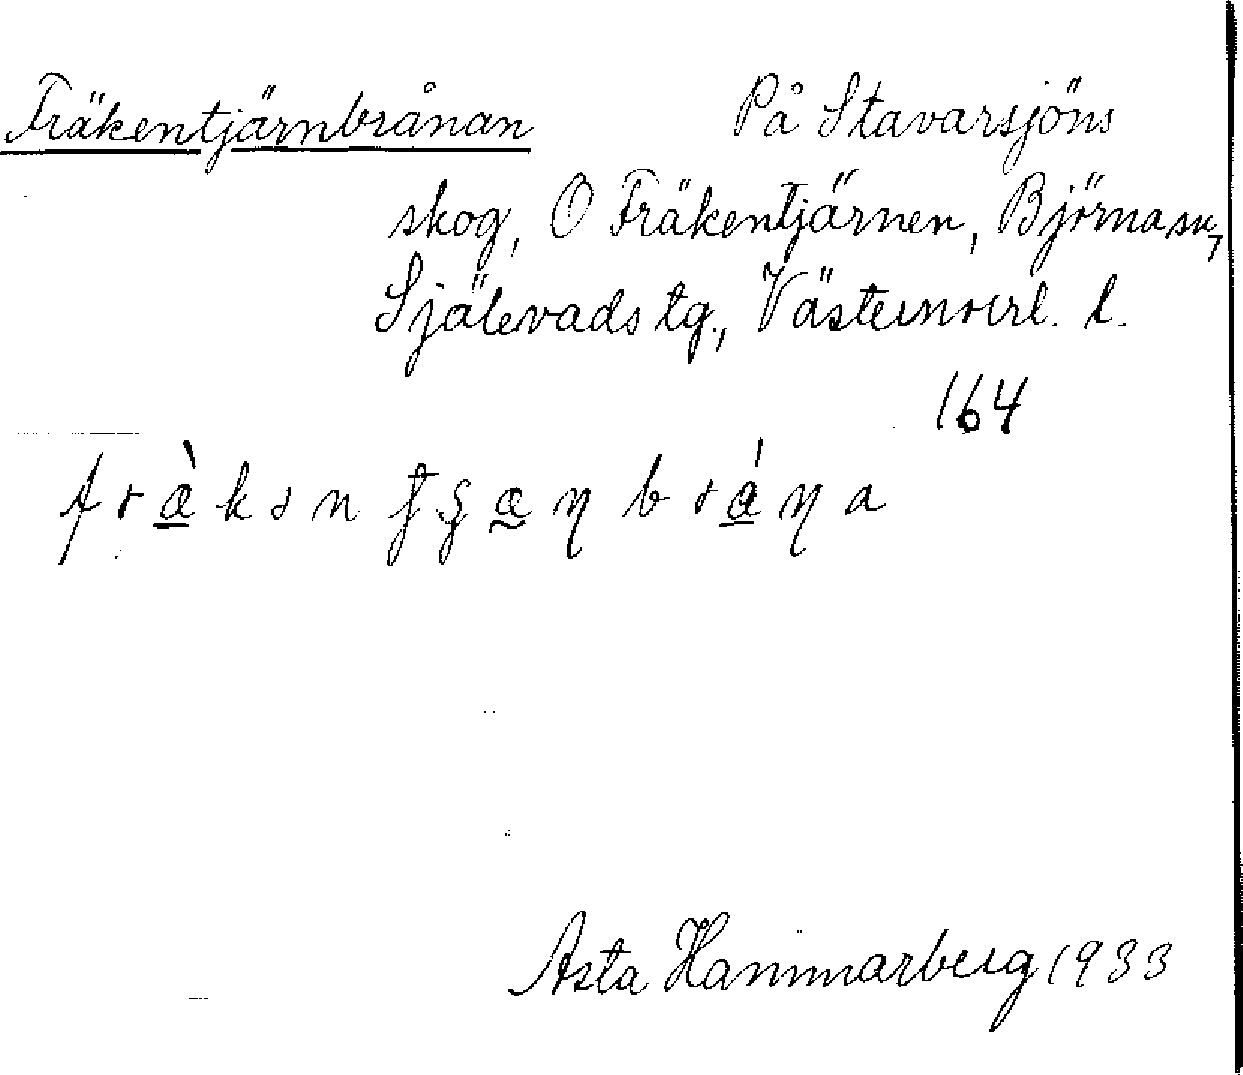 Fräkentjärnbrånan På Stavarsjöns
skog, O Fräkentjärnen, Björna sn,
Själevads tg., Västernorrl. l.
164
Asta Hammarberg 1933